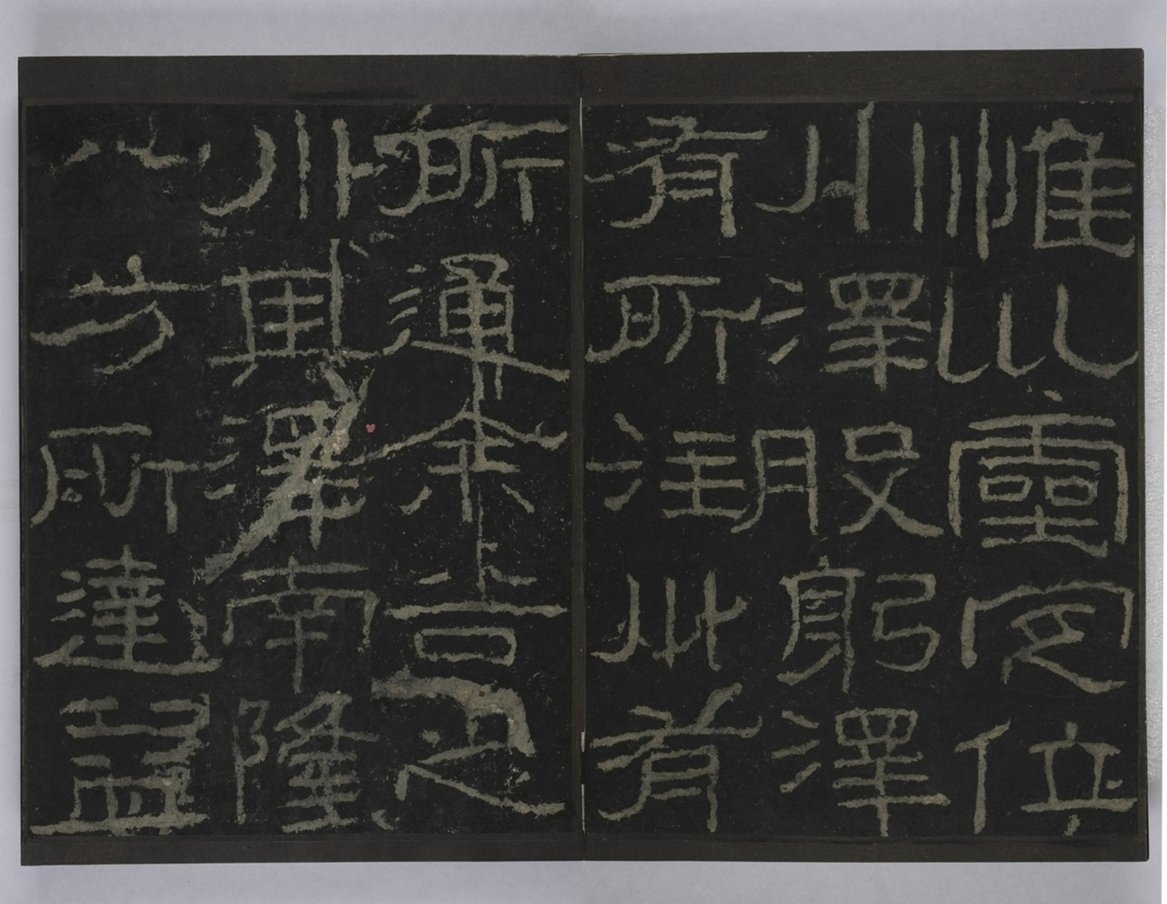 惟巛靈定位
川澤股躬澤
有所注川有
所通余谷之
川其澤南隆
八方所達益